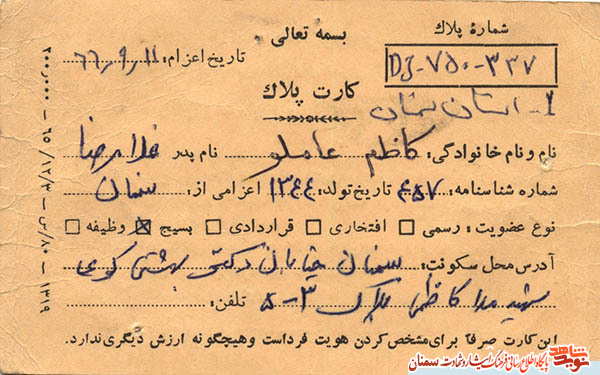 بسمه تعالی
شماره پلاك
DJ-۷۵۰-۳۳۷
تاریخ اعزام: ۶۶/۹/۱۱
کارت پلاك
۱- استان سمنان
نام و نام خانوادگی: کاظم عاملو نام پدر غلامرضا
شماره شناسنامه: ۶۵۷ تاریخ تولد: ۱۳۴۴ اعزامی از: سمنان
نوع عضویت: رسمی □ افتخاری □ قراردادی □ بسیج ☒ وظیفه □
آدرس محل سکونت: سمنان خیابان دکتر بهشتی کوی
شهید ملا کاظمی پلاک ۳-۵ تلفن:
این کارت صرفا برای مشخص کردن هویت فرد است و هیچگونه ارزش دیگری ندارد.
۱۳۱۹ — س/۸۰ — ۶۵/۱۲/۳ — ۲۰۰,۰۰۰
نوید شاهد
پایگاه اطلاع رسانی فرهنگ ایثار و شهادت سمنان